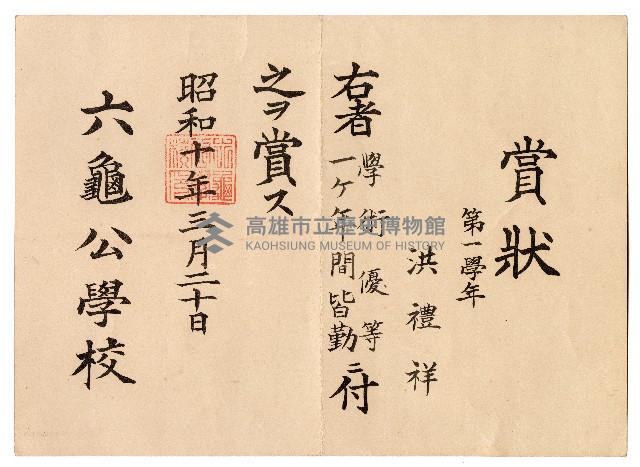 賞狀
第一學年
洪禮祥
右者學術優等
一ヶ年間皆勤ニ付
之ヲ賞ス
昭和十年三月二十日
六龜公學校
高雄市立歷史博物館
KAOHSIUNG MUSEUM OF HISTORY